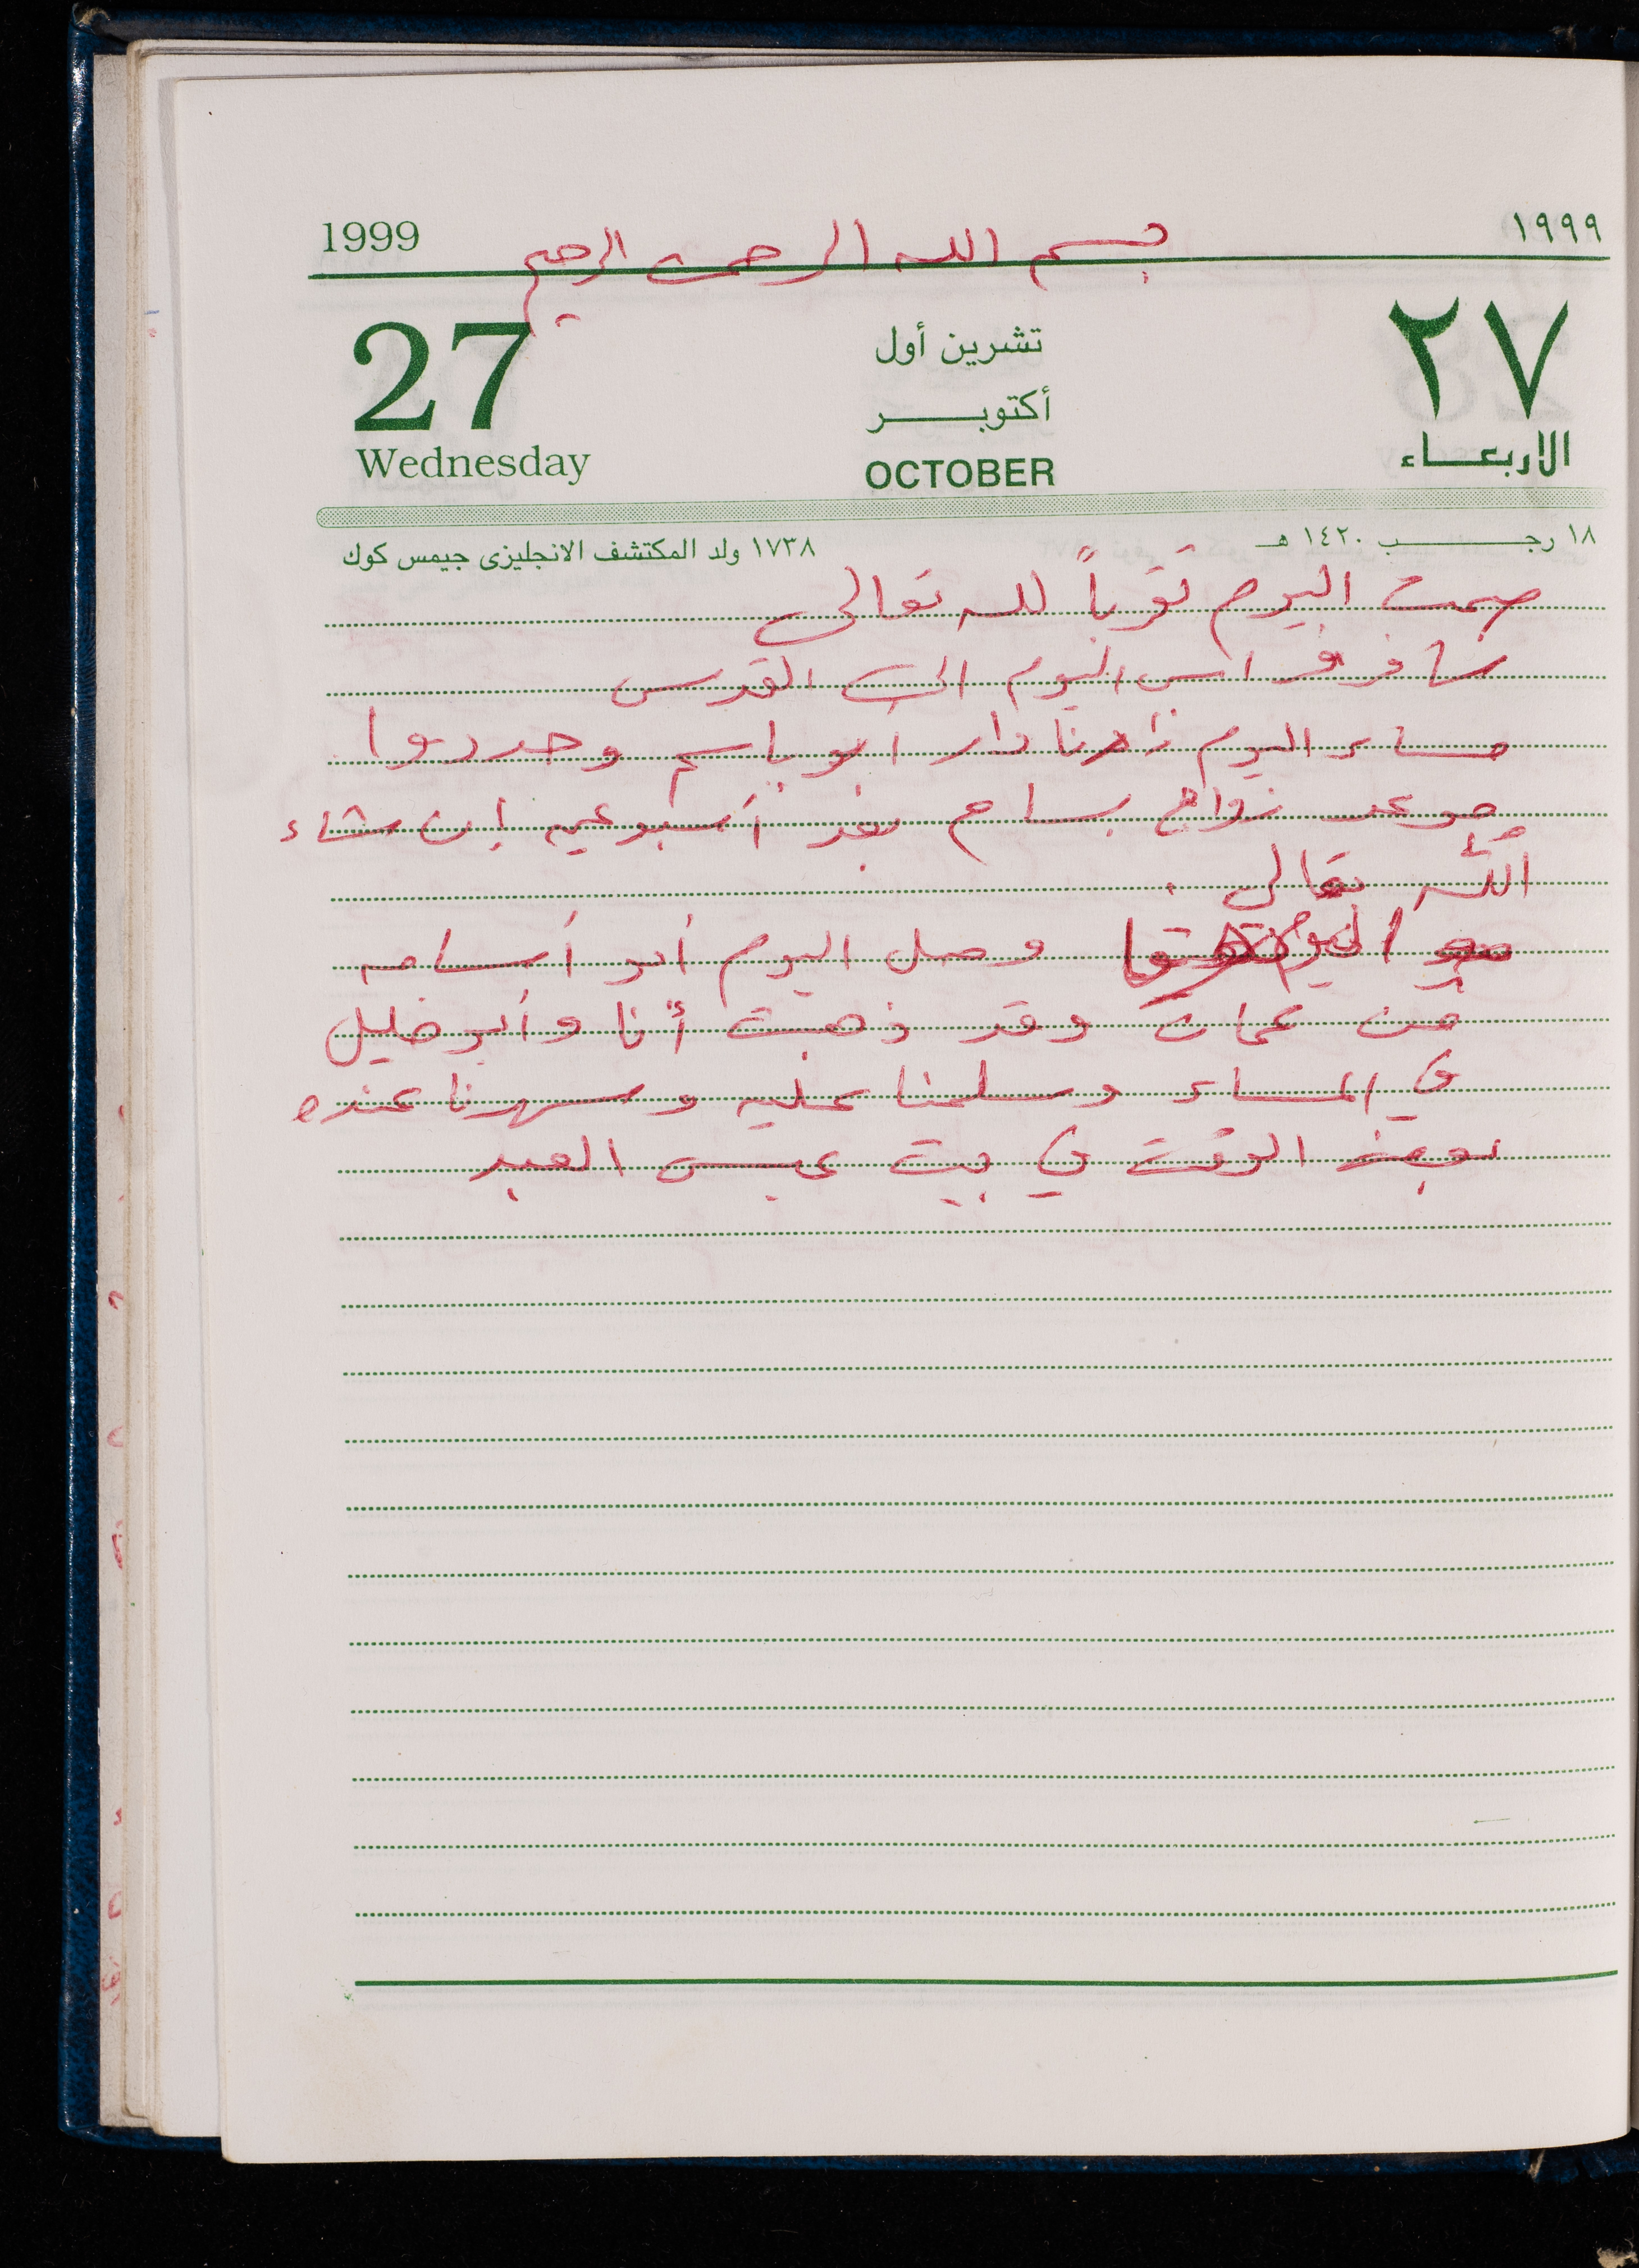 1999 بسم الله الرحمن الرحيم ١٩٩٩
27 تشرين أول ٢٧
أكتوبـــر
Wednesday OCTOBER الاربعـاء
١٨ رجـــب ١٤٢٠ هـ ١٧٣٨ ولد المكتشف الانجليزى جيمس كوك
صمت اليوم تقرباً لله تعالى
سافر فراس اليوم الى القدس
مساء اليوم زارنا دار ابو باسم وحددوا
موعد زواج بسام بعد أسبوعين إن شاء
اللّه تعالى .
وصل اليوم أبو أسامه
من عمان وقد ذهبت أنا وأبو خليل
في المساء وسلمنا عليه وسهرنا عنده
بعض الوقت في بيت عيسى العبد